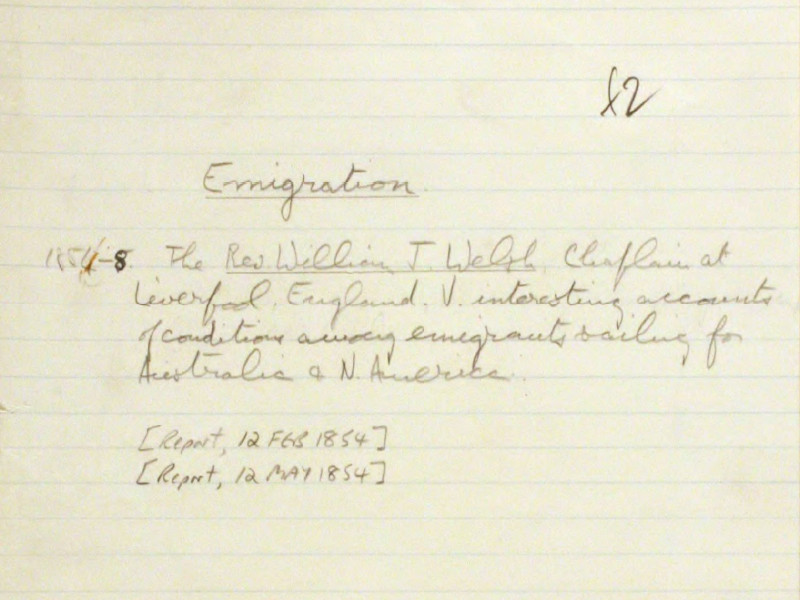 82
Emigration.
1854-8. The Rev. William J. Welsh, Chaplain at
Liverpool, England. V. interesting accounts
of conditions among emigrants sailing for
Australia & N. America.
[Report, 12 FEB 1854]
[Report, 12 MAY 1854]